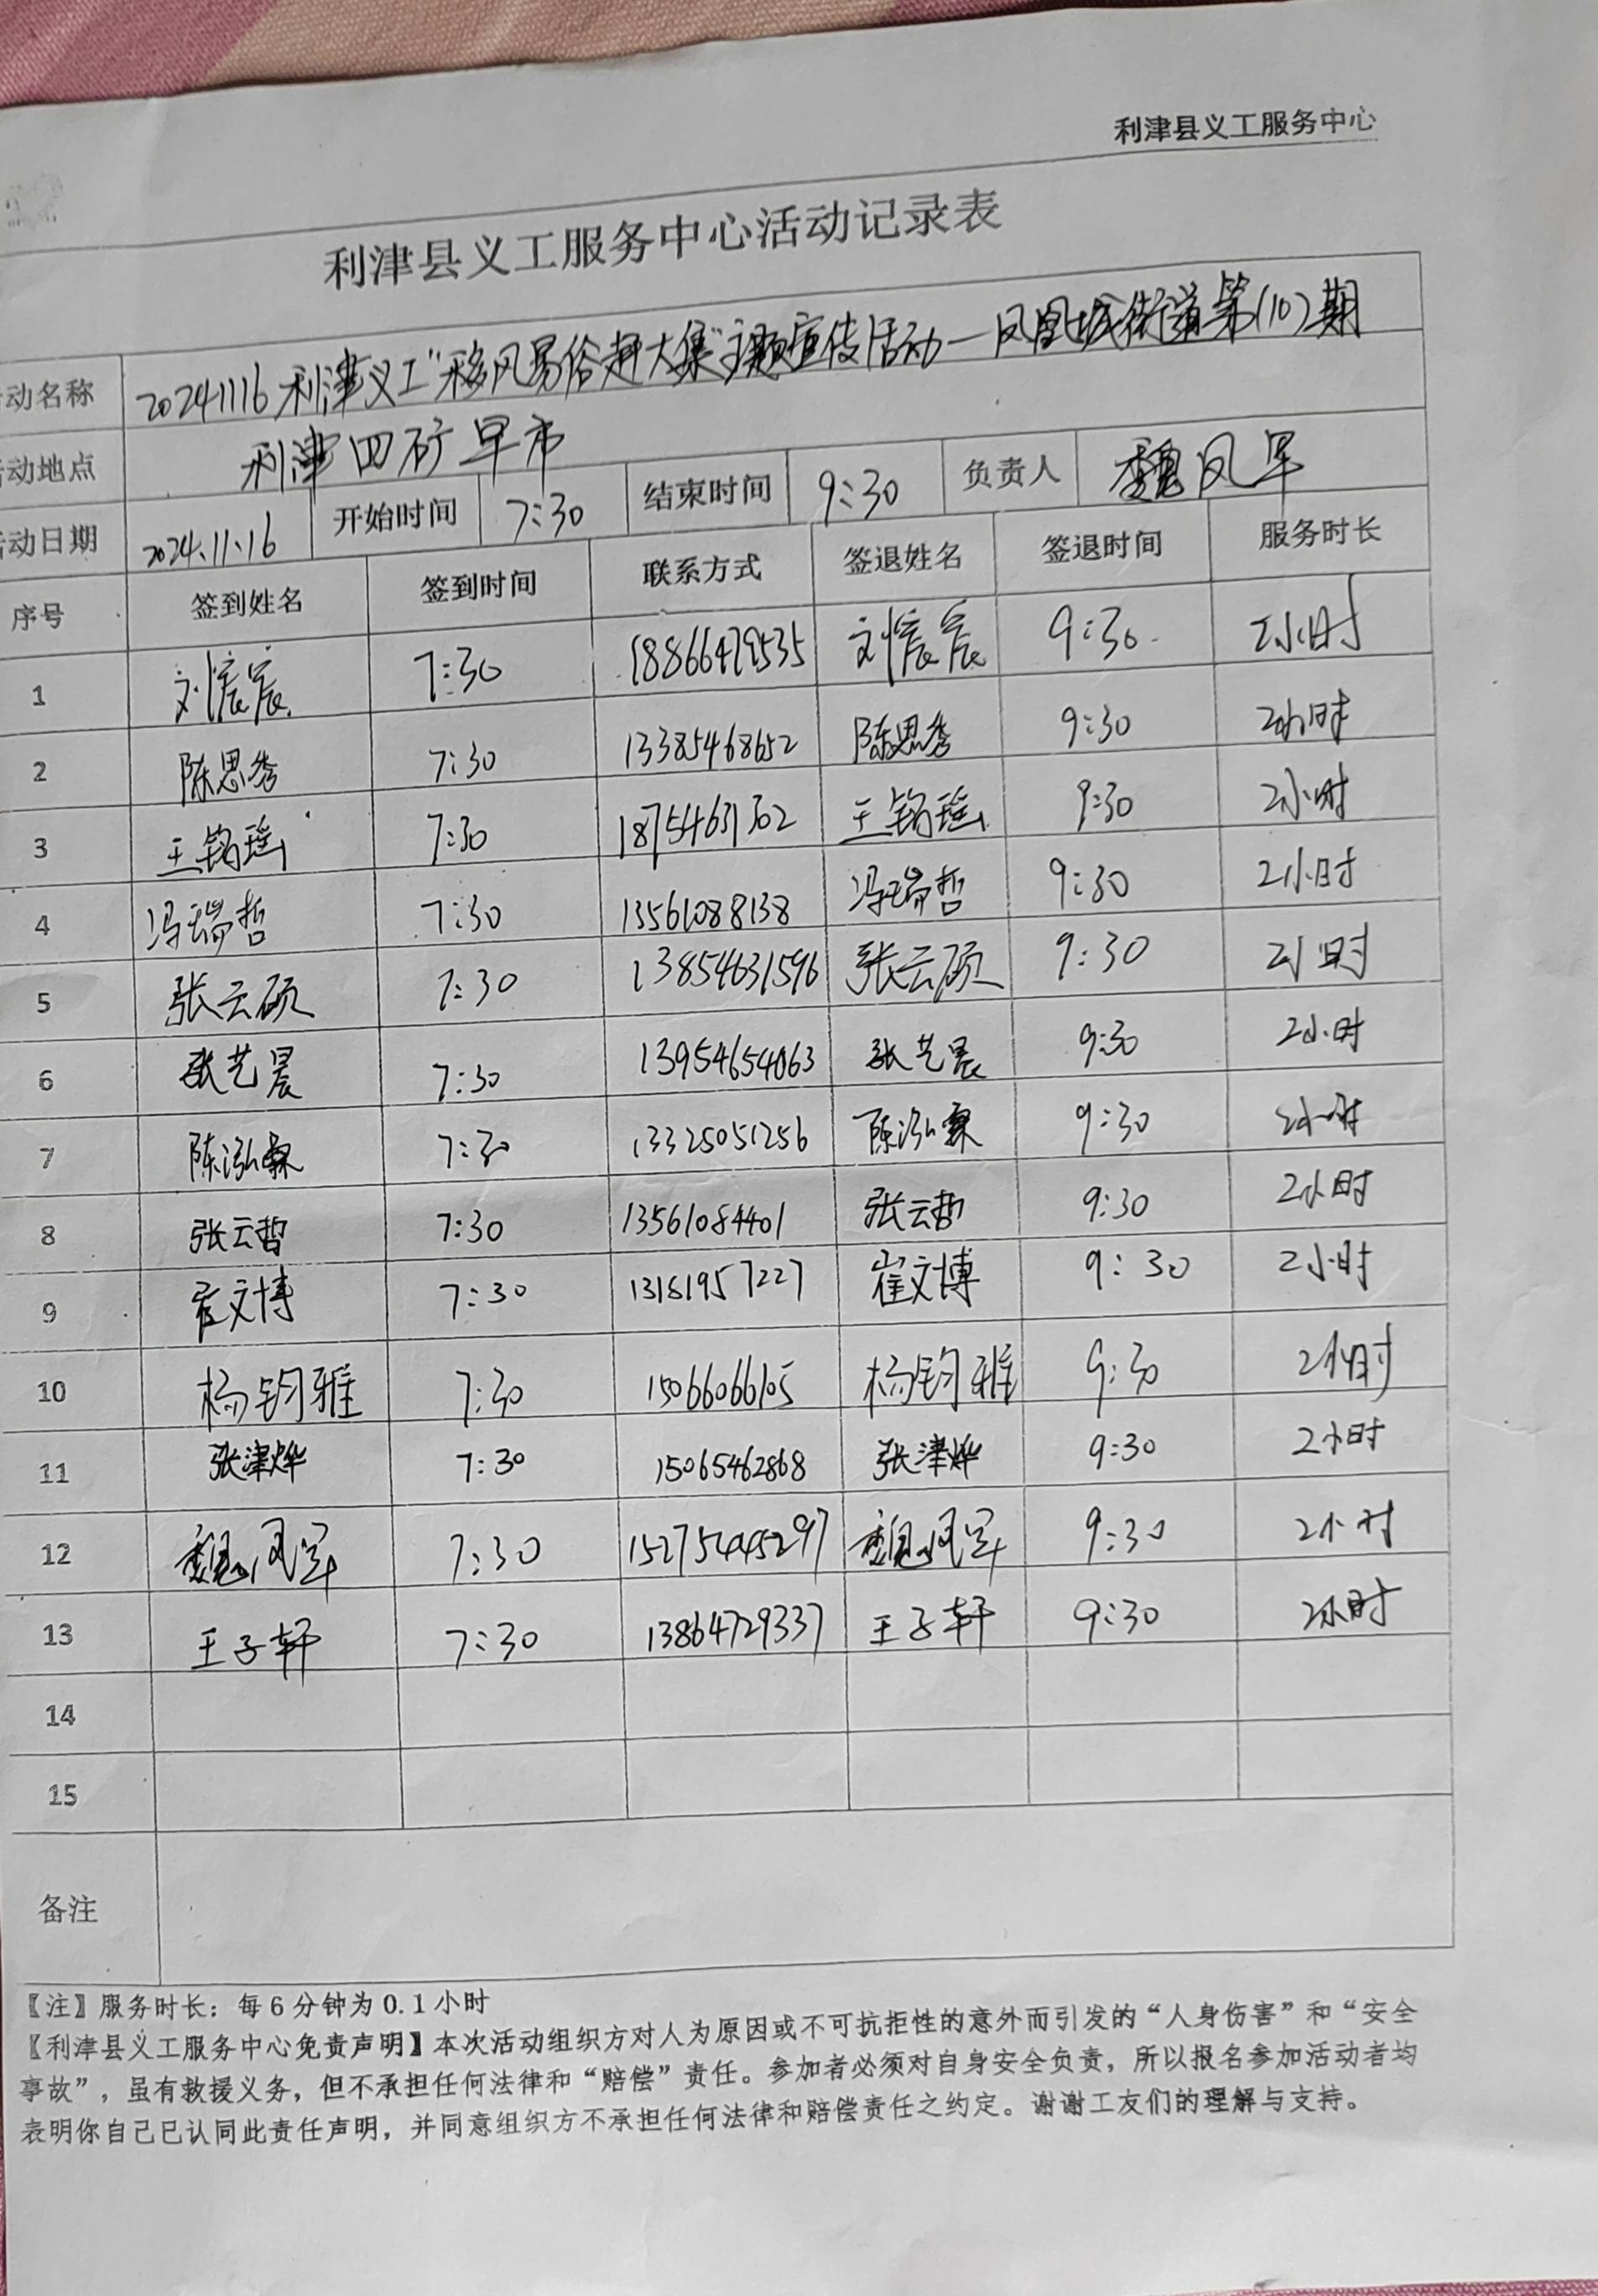 利津县义工服务中心
利津县义工服务中心活动记录表
动名称 20241116利津义工“移风易俗赶大集”主题宣传活动—凤凰城街道第(10)期
动地点 利津四矿早市
动日期 2024.11.16 开始时间 7:30 结束时间 9:30 负责人 魏凤军
序号 签到姓名 签到时间 联系方式 签退姓名 签退时间 服务时长
1 刘宸宸 7:30 刘宸宸 9:30 2小时
2 陈思秀 7:30 13385468652 陈思秀 9:30 2小时
3 王铭瑶 7:30 18754631302 王铭瑶 9:30 2小时
4 冯瑞哲 7:30 13561088138 冯瑞哲 9:30 2小时
5 张云硕 7:30 13854631596 张云硕 9:30 2小时
6 张艺晨 7:30 13954654063 张艺晨 9:30 2小时
7 陈泓霖 7:30 13325051256 陈泓霖 9:30 2小时
8 张云哲 7:30 13561084401 张云哲 9:30 2小时
9 崔文博 7:30 13181957227 崔文博 9:30 2小时
10 杨钧雅 7:30 15066066105 杨钧雅 9:30 2小时
11 张津烨 7:30 15065462868 张津烨 9:30 2小时
12 魏凤军 7:30 15275445297 魏凤军 9:30 2小时
13 王子轩 7:30 13864729337 王子轩 9:30 2小时
14
15
备注
【注】服务时长：每6分钟为0.1小时
【利津县义工服务中心免责声明】本次活动组织方对人为原因或不可抗拒性的意外而引发的“人身伤害”和“安全
事故”，虽有救援义务，但不承担任何法律和“赔偿”责任。参加者必须对自身安全负责，所以报名参加活动者均
表明你自己已认同此责任声明，并同意组织方不承担任何法律和赔偿责任之约定。谢谢工友们的理解与支持。